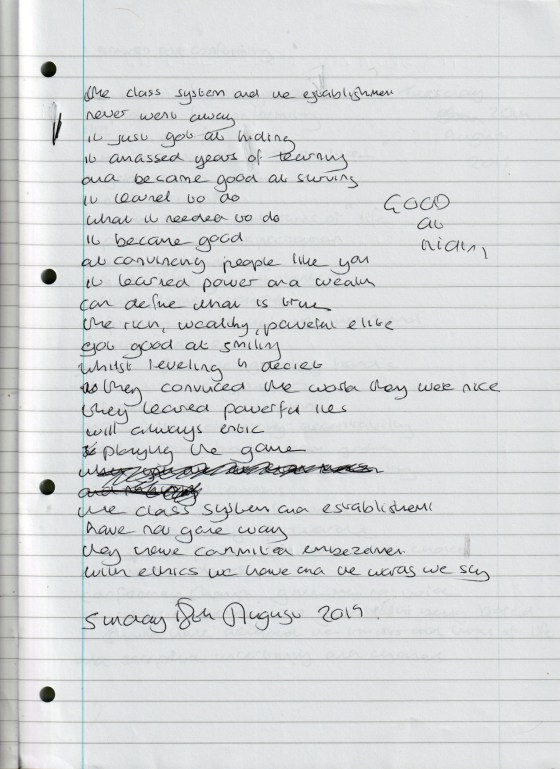 the class system and the establishment
never went away
it just got at hiding
it amassed years of learning
and became good at surving
it learnt to do
what it needed to do
it became good
at convincing people like you
it learned power and wealth
can define what is true
the rich, wealthy, powerful elite
got good at smiling
whilst leveling in deciet
they convinced the world they were nice
they learned powerful lies
will always entic
playing the game
the class system and establishment
have not gone way
they have commited embezemen
with ethics we have and the words we say
GOOD
at
hiding
Sunday 18th August 2019